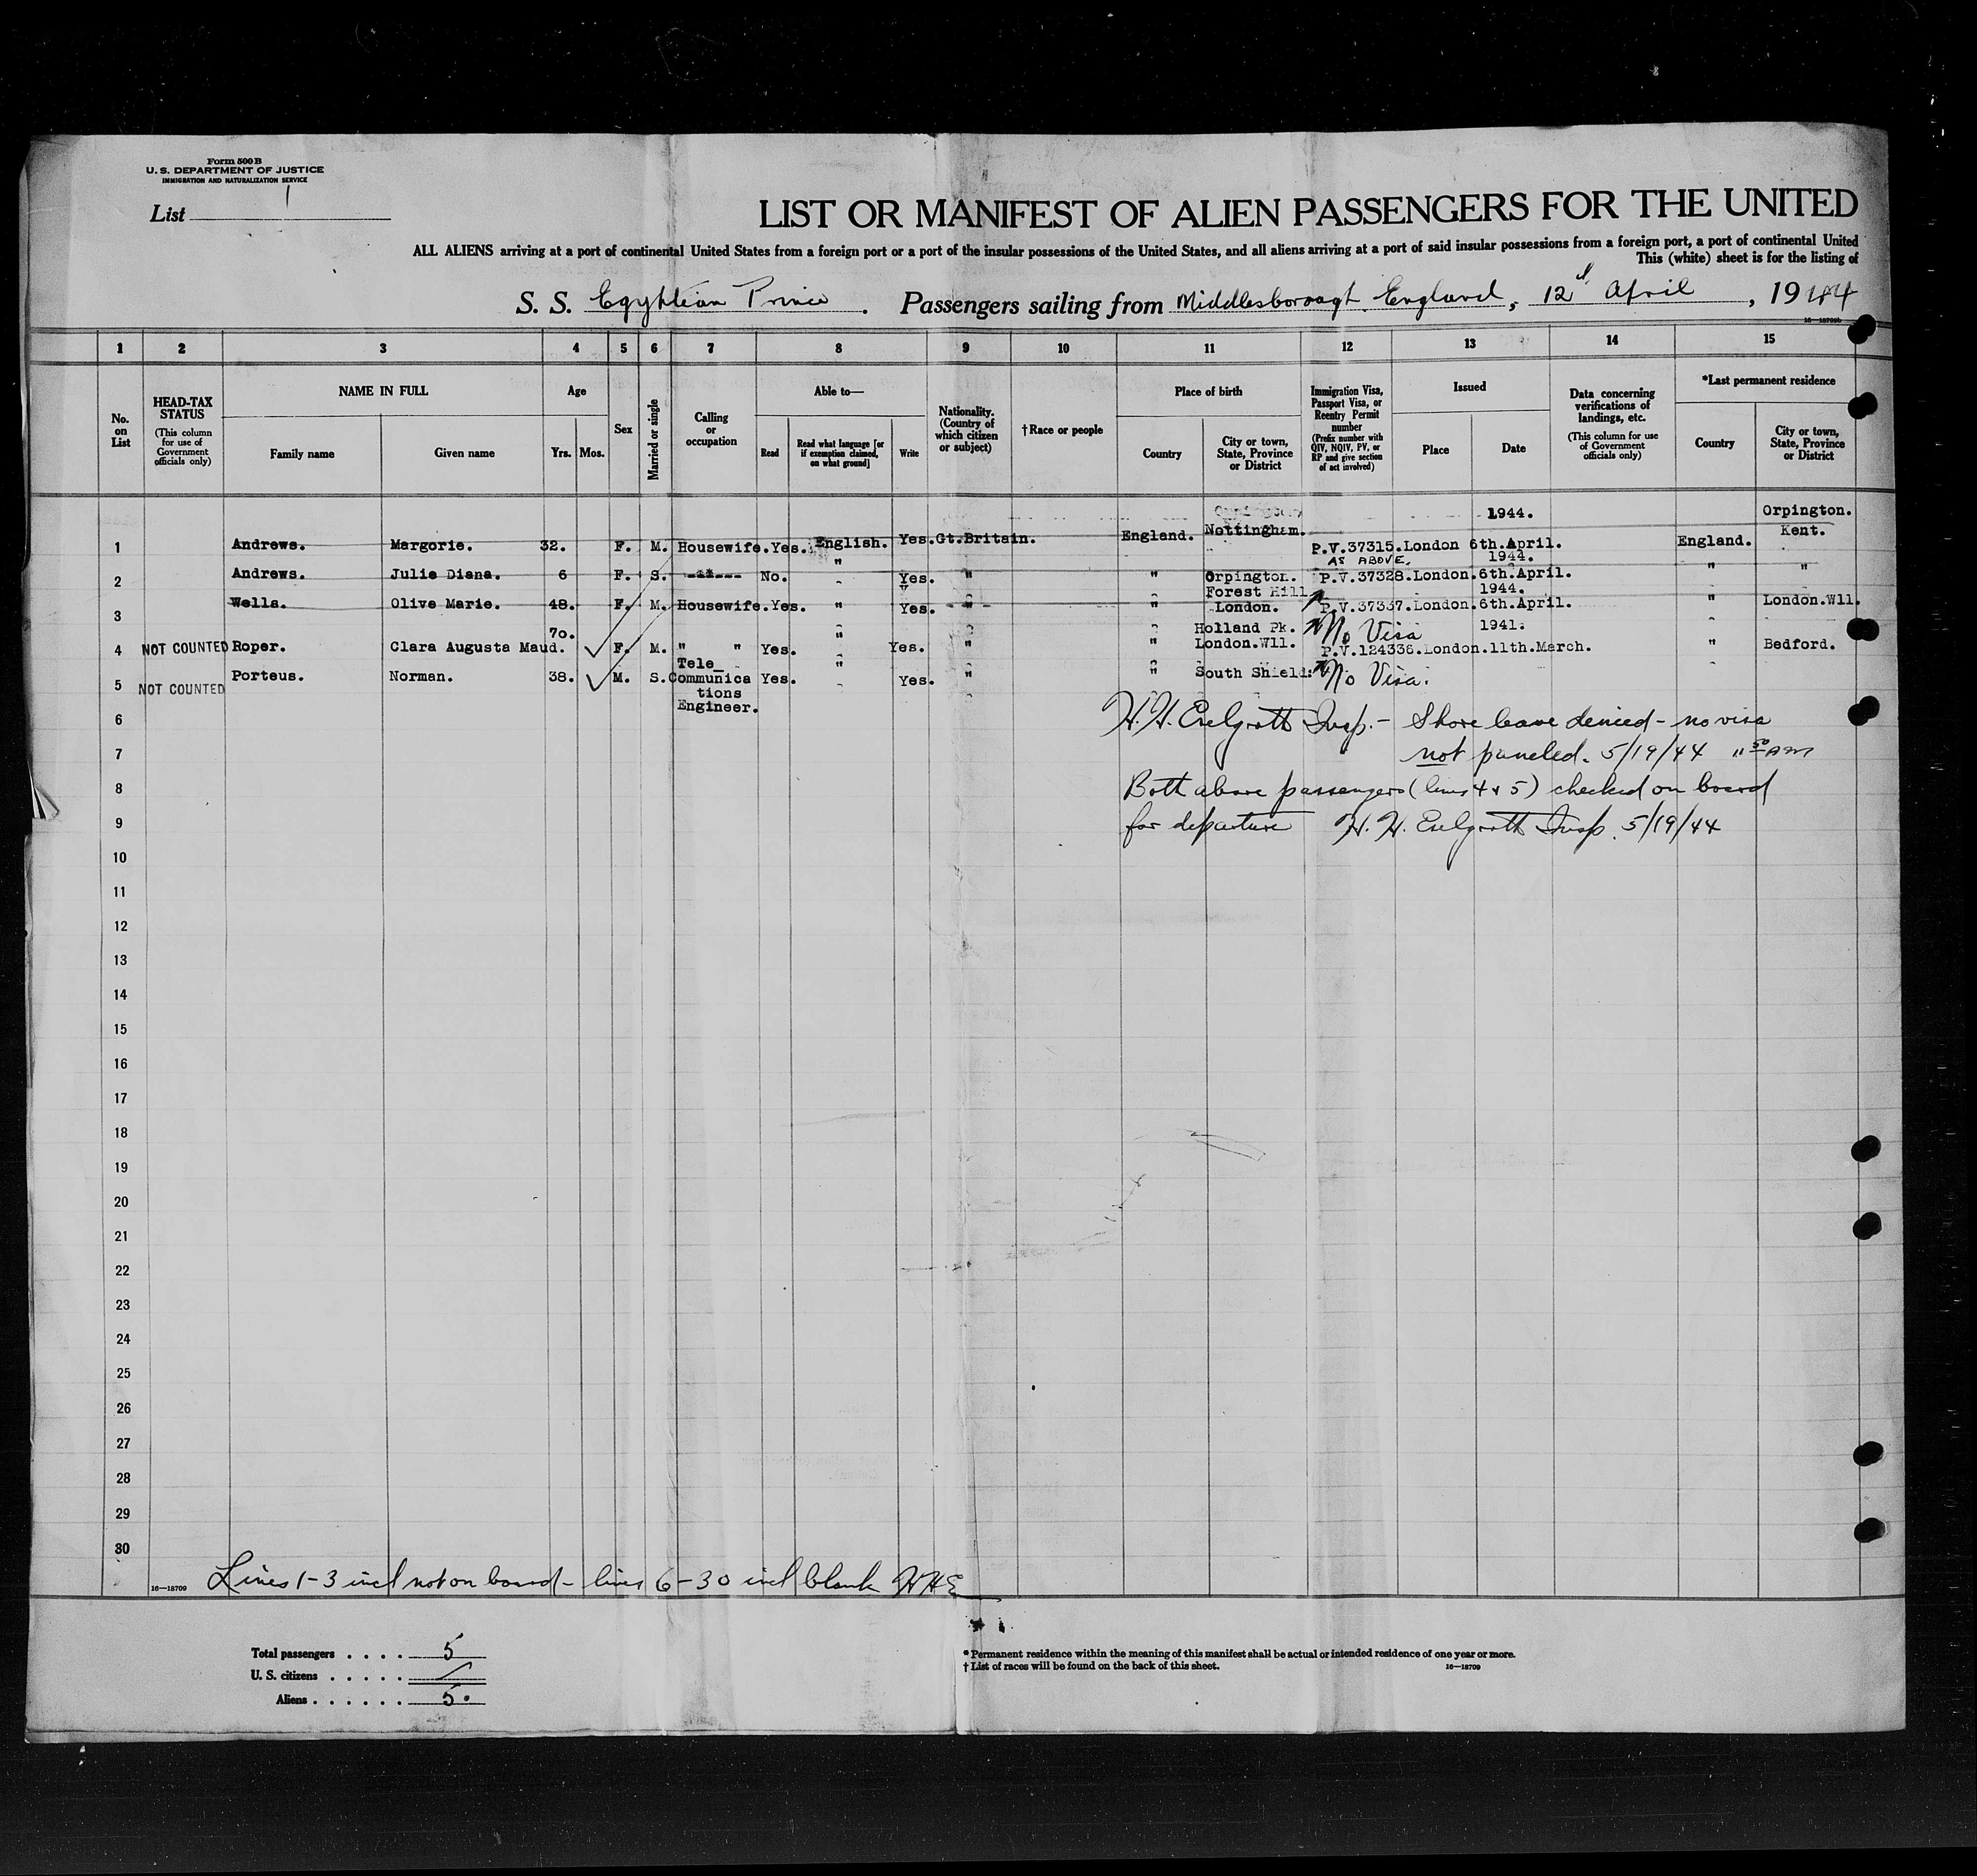 Form 500 B
U. S. DEPARTMENT OF JUSTICE
IMMIGRATION AND NATURALIZATION SERVICE
List 1
LIST OR MANIFEST OF ALIEN PASSENGERS FOR THE UNITED
ALL ALIENS arriving at a port of continental United States from a foreign port or a port of the insular possessions of the United States, and all aliens arriving at a port of said insular possessions from a foreign port, a port of continental United
This (white) sheet is for the listing of
S. S. Egyptian Prince . Passengers sailing from Middlesborough England , 12th April , 1944
16—18709b
1 2 3 4 5 6 7 8 9 10 11 12 13 14 15
No. on List
HEAD-TAX STATUS
(This column for use of Government officials only)
NAME IN FULL
Family name Given name
Age
Yrs. Mos.
Sex
Married or single
Calling or occupation
Able to—
Read
Read what language [or if exemption claimed, on what ground]
Write
Nationality. (Country of which citizen or subject)
†Race or people
Place of birth
Country
City or town, State, Province or District
Immigration Visa, Passport Visa, or Reentry Permit number
(Prefix number with QIV, NQIV, PV, or RP and give section of act involved)
Issued
Place Date
Data concerning verifications of landings, etc.
(This column for use of Government officials only)
*Last permanent residence
Country
City or town, State, Province or District
1944. Orpington.
1 Andrews. Margorie. 32. F. M. Housewife. Yes. English. Yes. Gt.Britain. England. Nottingham. P.V.37315. London 6th.April. England. Kent.
AS ABOVE. 1944.
2 Andrews. Julie Diana. 6 F. S. No. " Yes. " " Orpington. P.V.37328. London. 6th.April. " "
Forest Hill 1944.
3 Wells. Olive Marie. 48. F. M. Housewife. Yes. " Yes. " " London. P.V.37337. London. 6th.April. " London.W11.
70. Holland Pk. No Visa 1941.
4 NOT COUNTED Roper. Clara Augusta Maud. F. M. " " Yes. " Yes. " " London.W11. P.V.124336. London. 11th.March. " Bedford.
Tele_
5 NOT COUNTED Porteus. Norman. 38. M. S. Communica Yes. " Yes. " " South Shields No Visa.
tions
Engineer.
6 Insp. – Shore leave denied – no visa
7 not paneled. 5/19/44 11 50 AM
8 Both above passengers (lines 4 & 5) checked on board
9 for departure H. H. Insp. 5/19/44
10
11
12
13
14
15
16
17
18
19
20
21
22
23
24
25
26
27
28
29
30
16—18709 Lines 1–3 incl not on board – lines 6–30 incl blank HHE
Total passengers . . . . 5
U. S. citizens . . . . . /
Aliens . . . . . . 5.
* Permanent residence within the meaning of this manifest shall be actual or intended residence of one year or more.
† List of races will be found on the back of this sheet. 16—18709